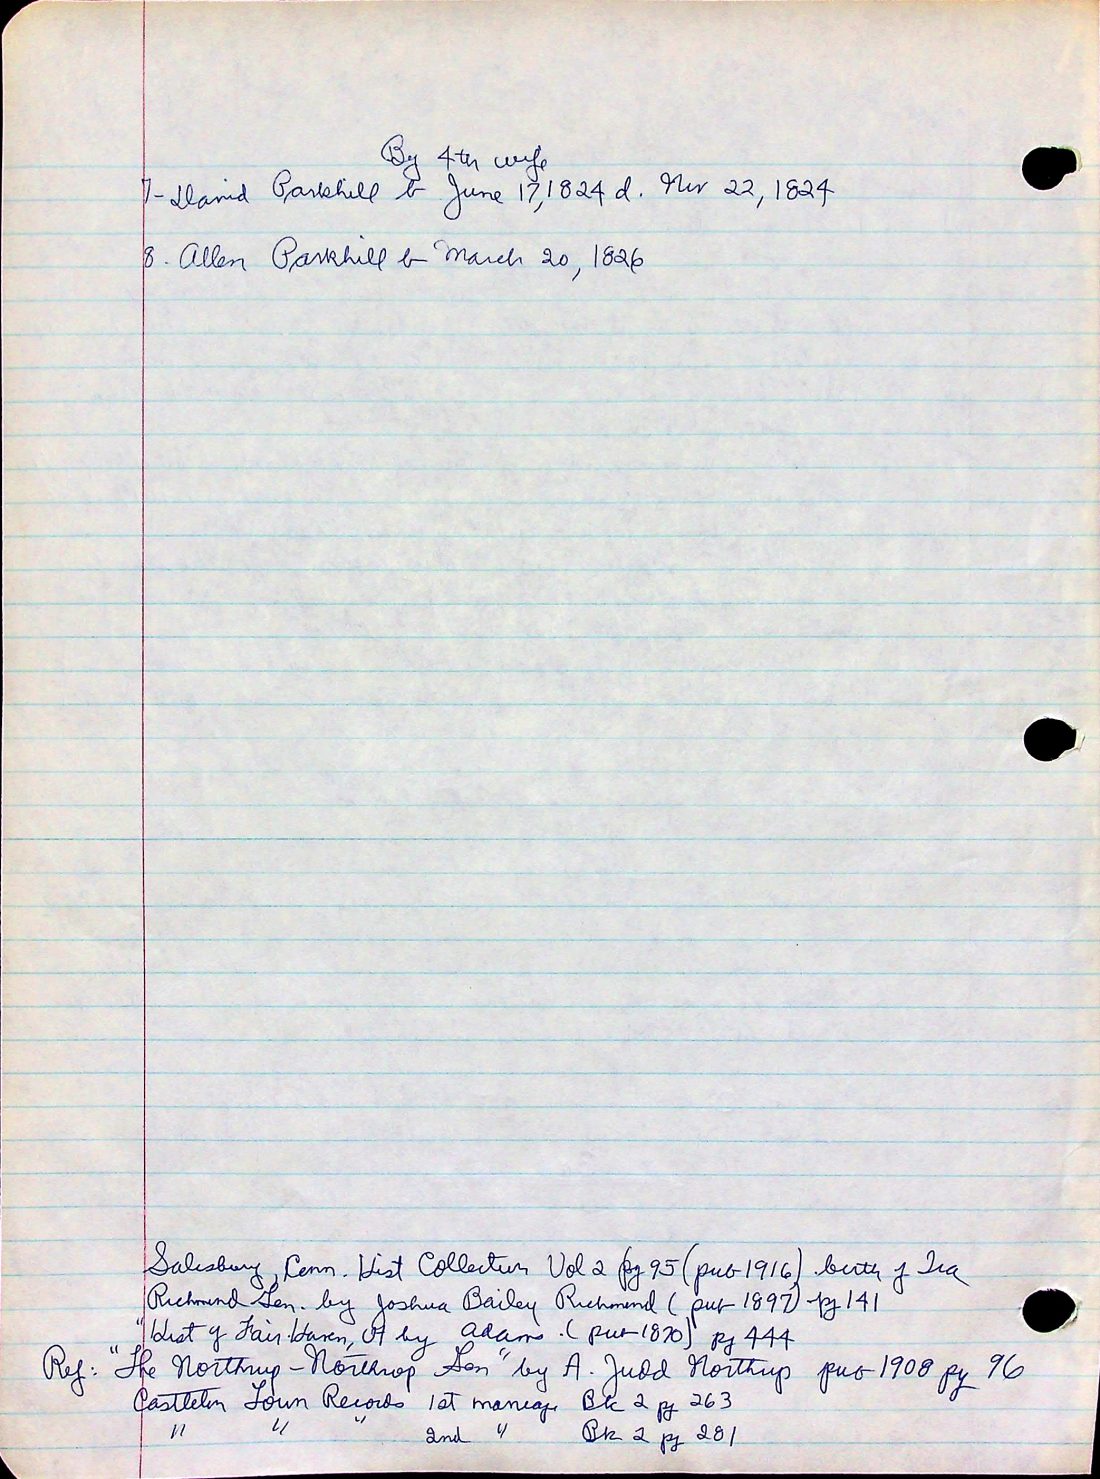 By 4th wife
7- David Parkhill b June 17, 1824 d. Nov 22, 1824
8. Allen Parkhill b March 20, 1826
Salisbury, Conn. Hist Collection Vol 2 pg 95 (pub 1916) birth of Ira
Richmond Gen. by Joshua Bailey Richmond (pub 1897) pg 141
"Hist of Fair Haven, Vt by Adams. (pub 1870) pg 444
Ref: "The Northrup-Northrop Gen" by A. Judd Northrup pub 1908 pg 96
Castleton Town Records 1st marriage Bk 2 pg 263
" " " 2nd " Bk 2 pg 281